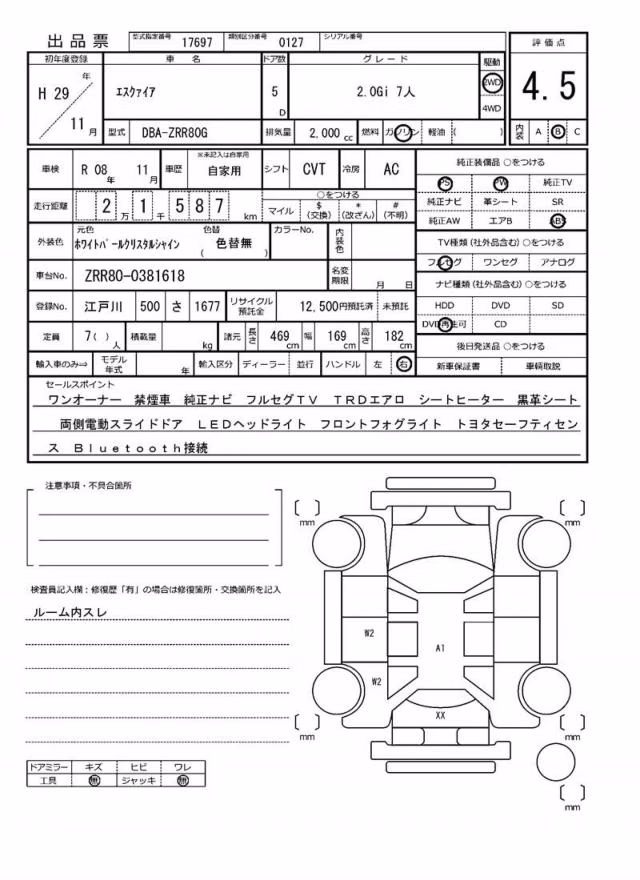 出品票 型式指定番号 17697 類別区分番号 0127 シリアル番号
初年度登録 車名 ドア数 グレード 駆動 評価点
H 29 年 11 月 エスクァイア 5 D 2.0Gi 7人 2WD 4WD 4.5
型式 DBA-ZRR80G 排気量 2,000 cc 燃料 ガソリン 軽油 ( ) 内装 A B C
車検 R 08 年 11 月 車歴 ※未記入は自家用 自家用 シフト CVT 冷房 AC 純正装備品 ○をつける
PS PW 純正TV
走行距離 2 万 1 千 5 8 7 km ○をつける マイル $ (交換) * (改ざん) # (不明) 純正ナビ 革シート SR
純正AW エアB ABS
外装色 元色 ホワイトパールクリスタルシャイン 色替 ( 色替無 ) カラーNo. 内装色 TV種類(社外品含む)○をつける
フルセグ ワンセグ アナログ
車台No. ZRR80-0381618 名変期限 月 日 ナビ種類(社外品含む)○をつける
登録No. 江戸川 500 さ 1677 リサイクル預託金 12,500円預託済 未預託 HDD DVD SD
DVD再生可 CD
定員 7( ) 人 積載量 kg 諸元 長さ 469 cm 幅 169 cm 高さ 182 cm 後日発送品 ○をつける
輸入車のみ⇒ モデル年式 年 輸入区分 ディーラー 並行 ハンドル 左 右 新車保証書 車輌取説
セールスポイント
ワンオーナー 禁煙車 純正ナビ フルセグTV TRDエアロ シートヒーター 黒革シート
両側電動スライドドア LEDヘッドライト フロントフォグライト トヨタセーフティセン
ス Bluetooth接続
注意事項・不具合箇所
mm mm
検査員記入欄：修復歴「有」の場合は修復箇所・交換箇所を記入
ルーム内スレ
W2
A1
W2
XX
mm mm
ドアミラー キズ ヒビ ワレ
工具 無 ジャッキ 無
mm